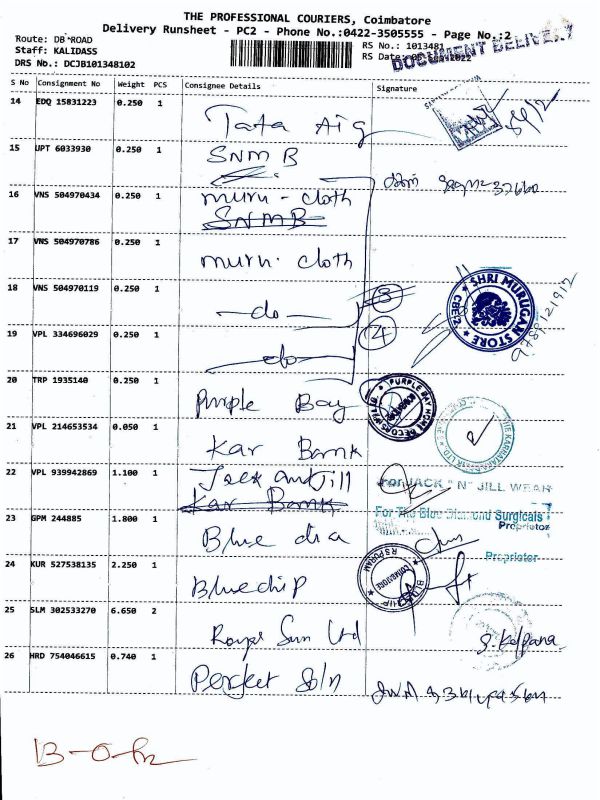 THE PROFESSIONAL COURIERS, Coimbatore
Delivery Runsheet - PC2 - Phone No.:0422-3505555 - Page No.:2
Route: DB ROAD
Staff: KALIDASS
DRS No.: DCJB101348102
RS No.: 1013481
RS Date: 2022
DOCUMENT DELIVERY
S No Consignment No Weight PCS Consignee Details Signature
14 EDQ 15831223 0.250 1 Tata Aig
15 JPT 6033930 0.250 1 SNMB
16 VNS 504970434 0.250 1 muru - cloth
SNMB
17 VNS 504970786 0.250 1 muru. cloth
18 VNS 504970119 0.250 1 -do- 3
19 VPL 334696029 0.250 1 -do- 4
SHRI MURUGAN STORE
CBE-2
20 TRP 1935140 0.250 1 Purple Bay
PURPLE BAY HOME DECORS
21 VPL 214653534 0.050 1 Kar Bank
22 VPL 939942869 1.100 1 Jack and Jill
Kar Bank
For JACK "N" JILL WEAR
23 GPM 244885 1.800 1 Blue dia
For The Blue Diamond Surgicals
Proprietor
Proprietor
24 KUR 527538135 2.250 1 Bluechip
R S PURAM
25 SLM 302533270 6.650 2 Royal Sun Ltd
S. Kalpana
26 HRD 754046615 0.740 1 Perfect Soln